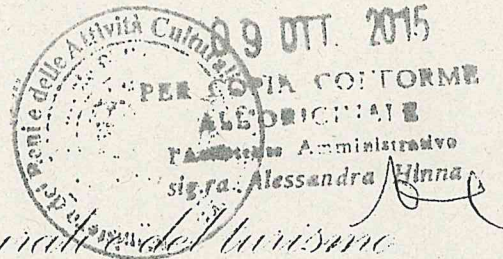 09 OTT. 2015
PER COPIA CONFORME
ALL'ORIGINALE
Amministrativo
sig.ra Alessandra Hinna
dei Beni e delle Attività Culturali
e del turismo